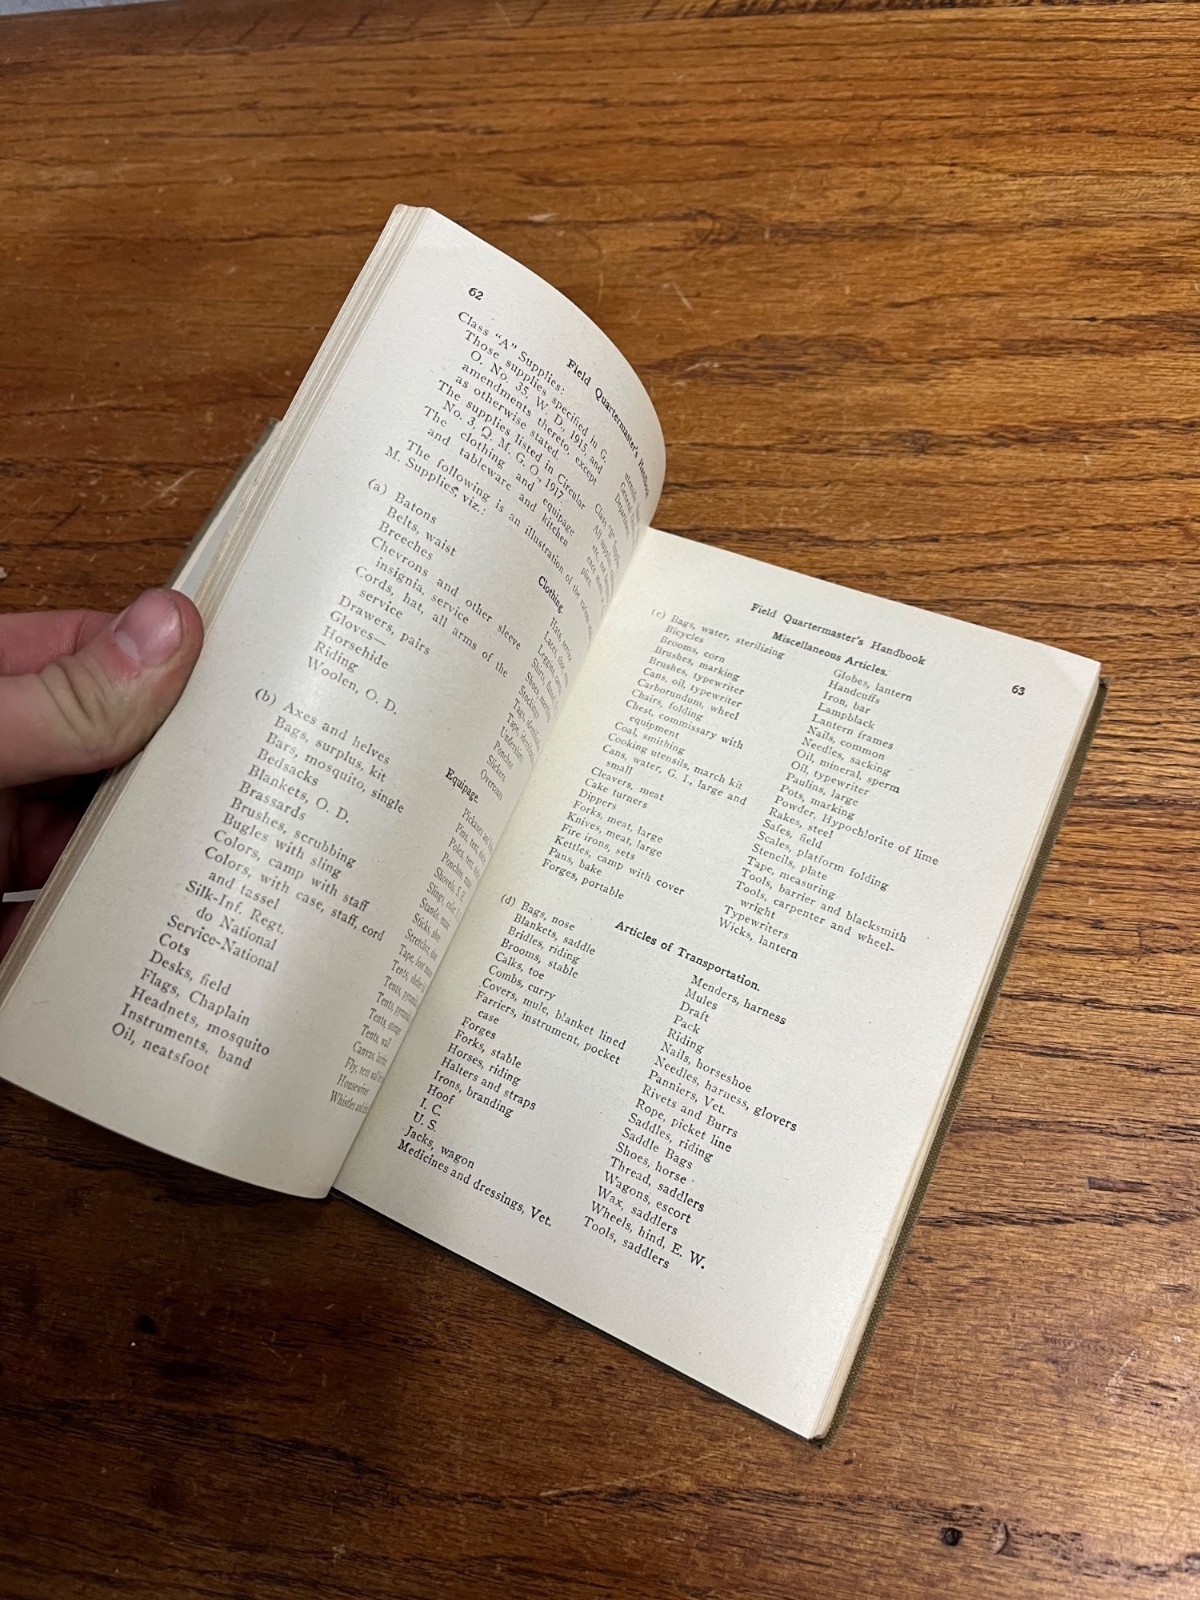 62
Field Quartermaster's Handbook
Class "A" Supplies:
Those supplies specified in G.
O. No. 35, W. D., 1915, and
amendments thereto, except
as otherwise stated.
The supplies listed in Circular
No. 3, Q. M. G. O., 1917.
The clothing and equipage
and tableware and kitchen
utensils
General
Department
Class "B" Supplies
All supplies
The following is an illustration of the various
M. Supplies, viz.:
Clothing.
(a) Batons
Belts, waist
Breeches
Chevrons and other sleeve
insignia, service
Cords, hat, all arms of the
service
Drawers, pairs
Gloves—
Horsehide
Riding
Woolen, O. D.
Hats, service
Laces, shoe
Leggins
Shirts
Shoes
Stockings
Tags
Tape
Undershirts
Ponchos
Slickers
Overcoats
Equipage.
(b) Axes and helves
Bags, surplus, kit
Bars, mosquito, single
Bedsacks
Blankets, O. D.
Brassards
Brushes, scrubbing
Bugles with sling
Colors, camp with staff
Colors, with case, staff, cord
and tassel
Silk-Inf. Regt.
do National
Service-National
Cots
Desks, field
Flags, Chaplain
Headnets, mosquito
Instruments, band
Oil, neatsfoot
Pickaxes and
Pins, tent
Poles, tent
Ponchos
Shovels
Slings
Stands
Sticks
Stretcher
Tape, foot
Tents, shelter
Tents, pyramidal
Tents, pyramidal
Tents, storage
Tents, wall
Canvas
Fly, tent wall
Housewives
Whistles and
Field Quartermaster's Handbook
63
Miscellaneous Articles.
(c) Bags, water, sterilizing
Bicycles
Brooms, corn
Brushes, marking
Brushes, typewriter
Cans, oil, typewriter
Carborundum, wheel
Chairs, folding
Chest, commissary with
equipment
Coal, smithing
Cooking utensils, march kit
Cans, water, G. I., large and
small
Cleavers, meat
Cake turners
Dippers
Forks, meat, large
Knives, meat, large
Fire irons, sets
Kettles, camp with cover
Pans, bake
Forges, portable
Globes, lantern
Handcuffs
Iron, bar
Lampblack
Lantern frames
Nails, common
Needles, sacking
Oil, mineral, sperm
Oil, typewriter
Paulins, large
Pots, marking
Powder, Hypochlorite of lime
Rakes, steel
Safes, field
Scales, platform folding
Stencils, plate
Tape, measuring
Tools, barrier and blacksmith
Tools, carpenter and wheel-
wright
Typewriters
Wicks, lantern
Articles of Transportation.
(d) Bags, nose
Blankets, saddle
Bridles, riding
Brooms, stable
Calks, toe
Combs, curry
Covers, mule, blanket lined
Farriers, instrument, pocket
case
Forges
Forks, stable
Horses, riding
Halters and straps
Irons, branding
Hoof
I. C.
U. S.
Jacks, wagon
Medicines and dressings, Vet.
Menders, harness
Mules
Draft
Pack
Riding
Nails, horseshoe
Needles, harness, glovers
Panniers, Vet.
Rivets and Burrs
Rope, picket line
Saddles, riding
Saddle Bags
Shoes, horse
Thread, saddlers
Wagons, escort
Wax, saddlers
Wheels, hind, E. W.
Tools, saddlers